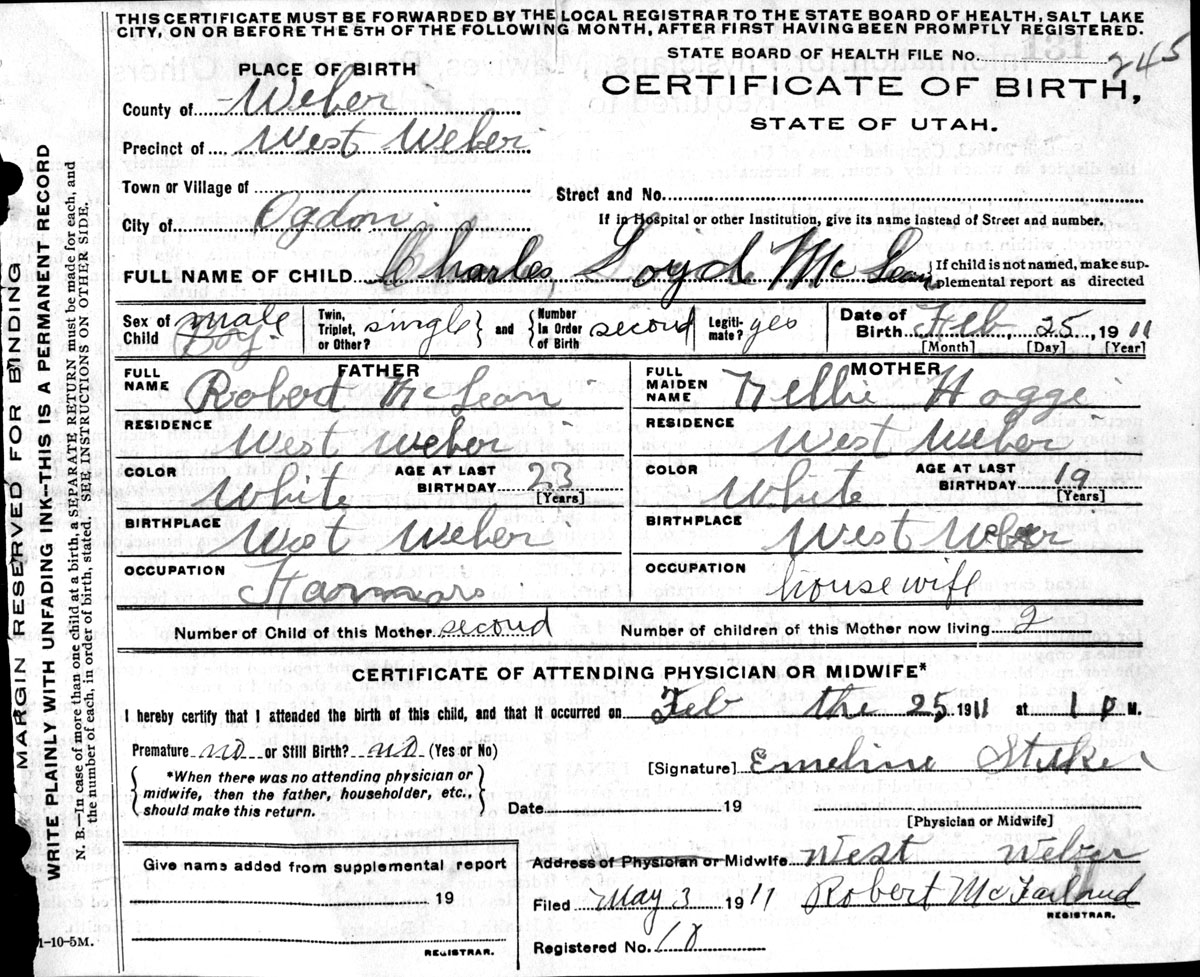 THIS CERTIFICATE MUST BE FORWARDED BY THE LOCAL REGISTRAR TO THE STATE BOARD OF HEALTH, SALT LAKE
CITY, ON OR BEFORE THE 5TH OF THE FOLLOWING MONTH, AFTER FIRST HAVING BEEN PROMPTLY REGISTERED.
STATE BOARD OF HEALTH FILE No. 245
PLACE OF BIRTH
CERTIFICATE OF BIRTH,
STATE OF UTAH.
County of Weber
Precinct of West Weber
Town or Village of
Street and No.
City of Ogdon
If in Hospital or other Institution, give its name instead of Street and number.
FULL NAME OF CHILD Charles, Loyd McLean { If child is not named, make sup-
plemental report as directed
Sex of Child male Boy. Twin, Triplet, or Other? single } and { Number In Order of Birth second Legiti-mate? yes Date of Birth Feb, 25, 1911
[Month] [Day] [Year]
FATHER MOTHER
FULL NAME Robert McLean FULL MAIDEN NAME Nellie Hogge
RESIDENCE West Weber RESIDENCE West Weber
COLOR White AGE AT LAST BIRTHDAY 23 [Years] COLOR White AGE AT LAST BIRTHDAY 19 [Years]
BIRTHPLACE West Weber BIRTHPLACE West Weber
OCCUPATION OCCUPATION housewife
Number of Child of this Mother second Number of children of this Mother now living 2
CERTIFICATE OF ATTENDING PHYSICIAN OR MIDWIFE*
I hereby certify that I attended the birth of this child, and that it occurred on Feb the 25, 1911 at 1 P M.
Premature no or Still Birth? no (Yes or No)
{ *When there was no attending physician or
midwife, then the father, householder, etc.,
should make this return. }
[Signature] Emeline
Date 19
[Physician or Midwife]
Give name added from supplemental report
19
REGISTRAR.
Address of Physician or Midwife West Weber
Filed May 3 1911 Robert McFarland
REGISTRAR.
Registered No. 18
1-10-5M.
MARGIN RESERVED FOR BINDING
WRITE PLAINLY WITH UNFADING INK—THIS IS A PERMANENT RECORD
N. B.—In case of more than one child at a birth, a SEPARATE RETURN must be made for each, and
the number of each, in order of birth, stated. SEE INSTRUCTIONS ON OTHER SIDE.